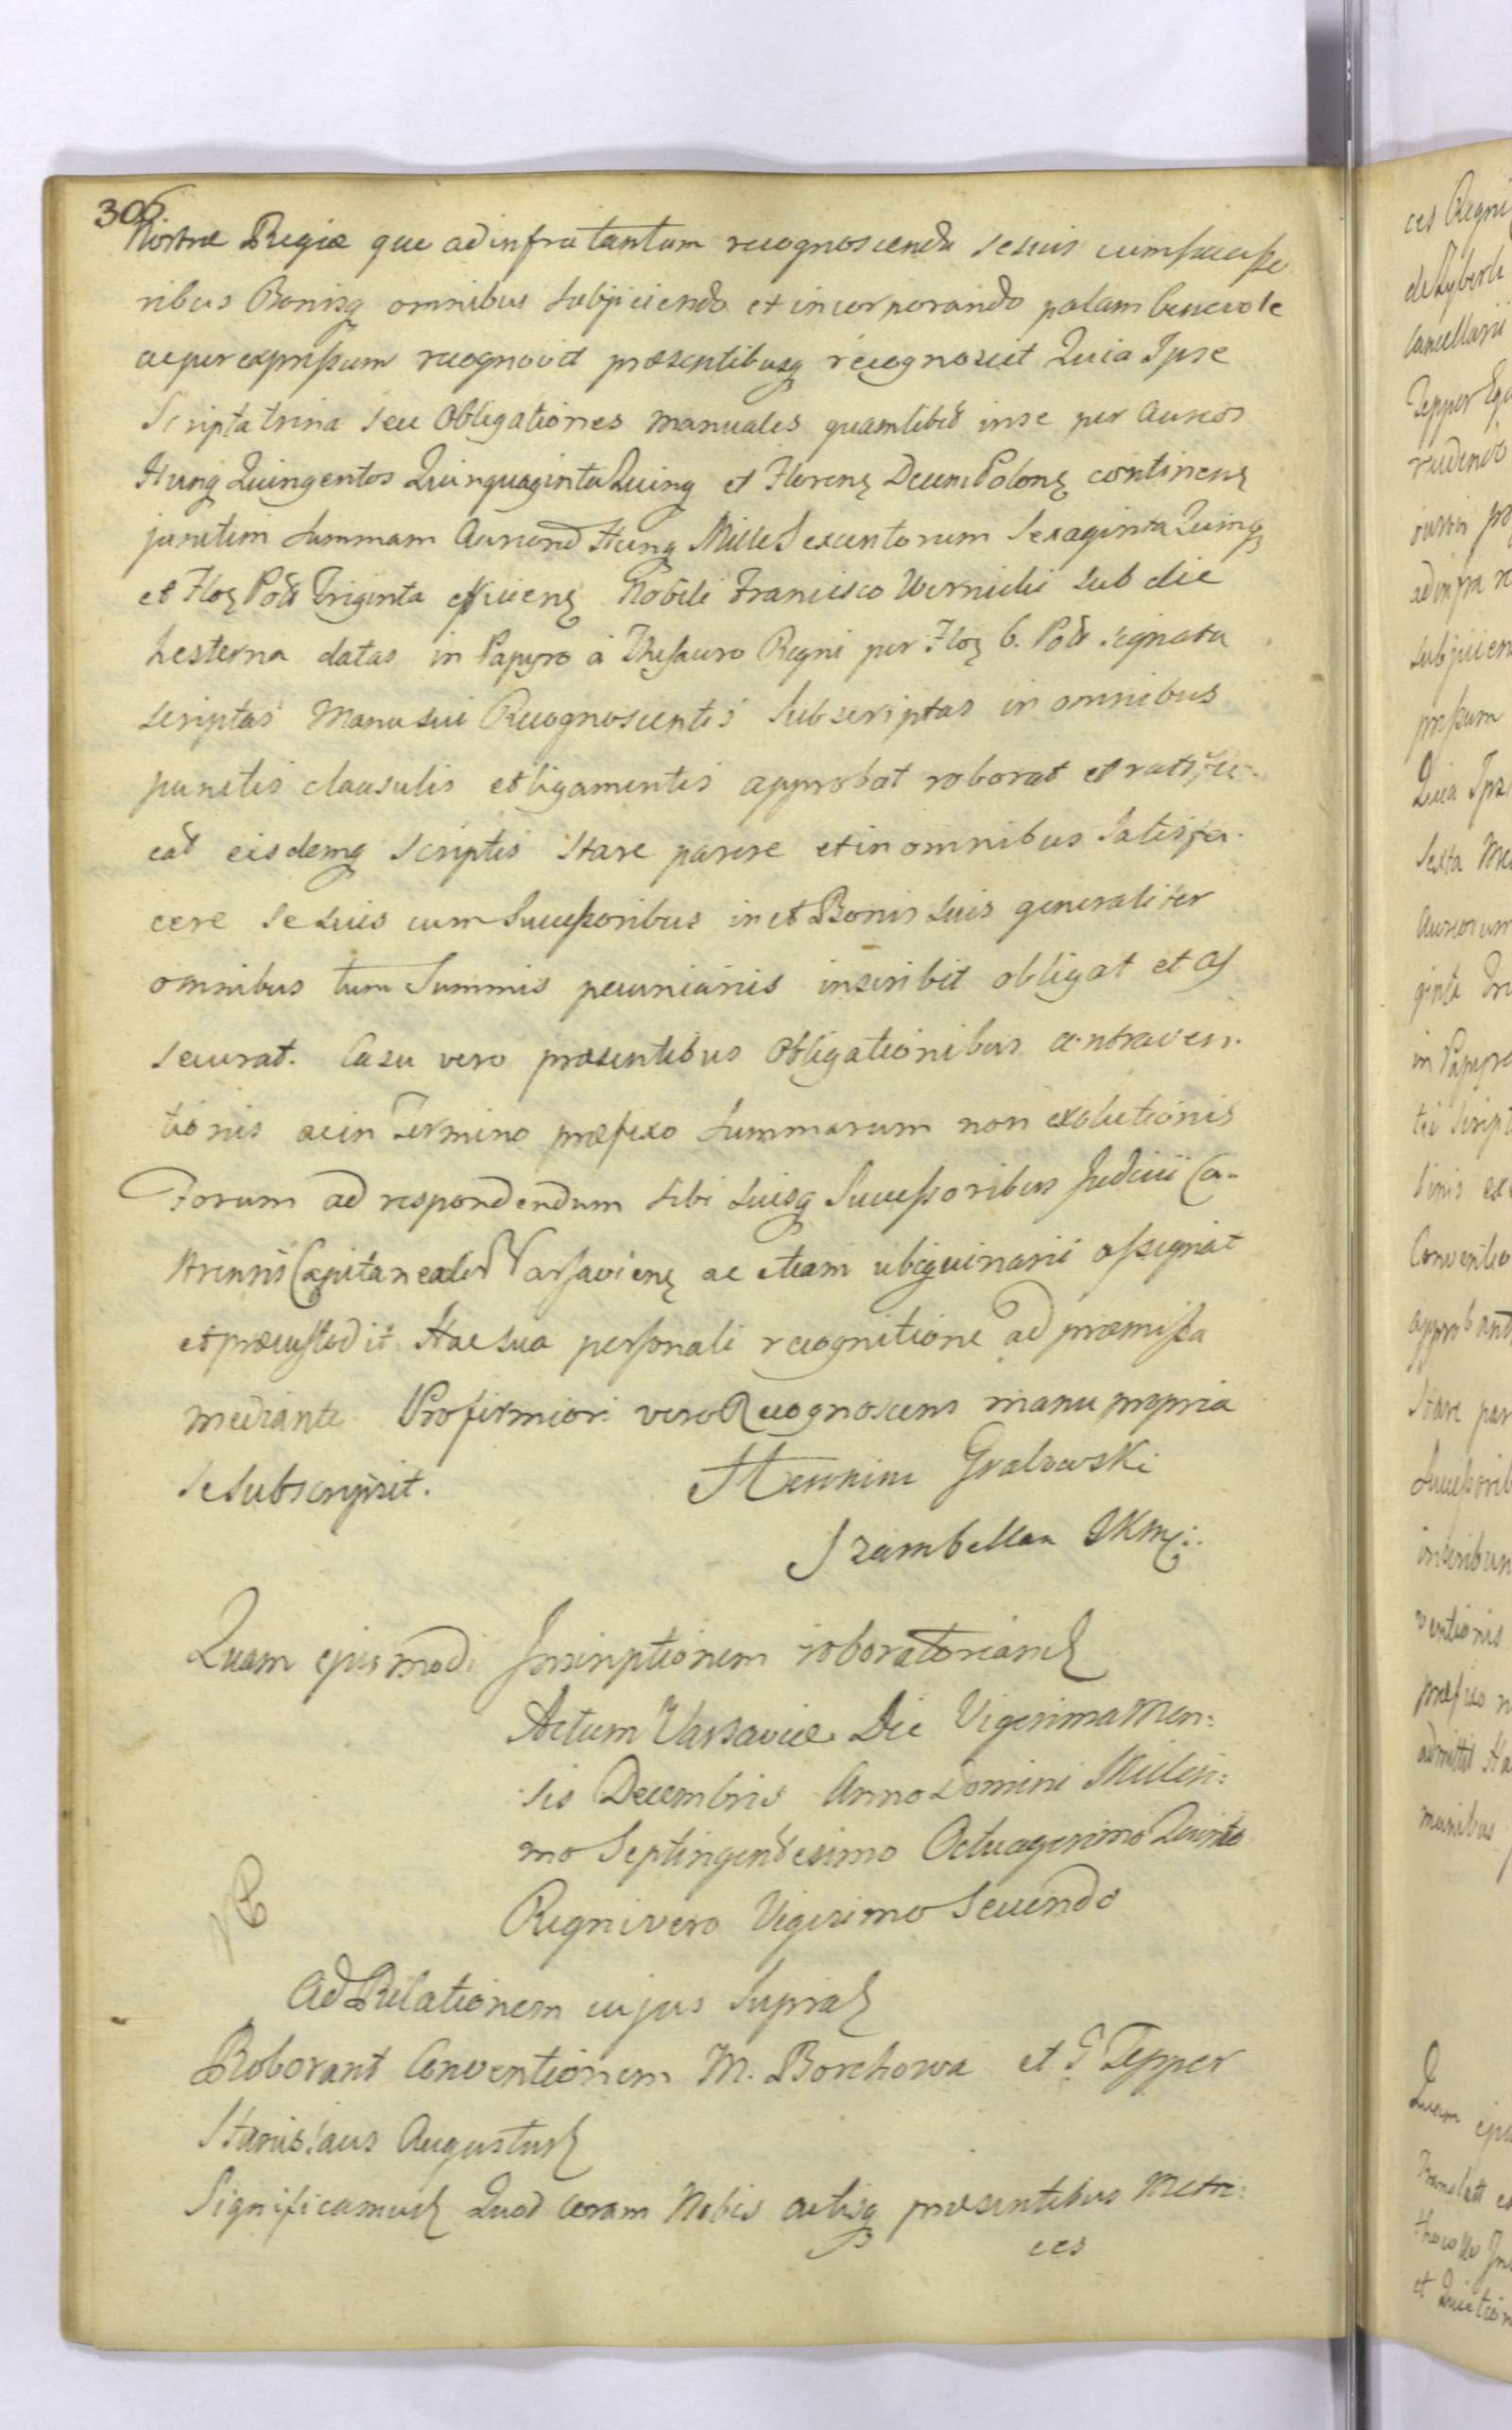 306.
Nostræ Regiæ que ad infra tantum recognoscenda se suis cum successo
ribus Bonisq omnibus subjiciendo et incorporando palam benevole
ac per expressum recognovit præsentibusq recognoscit Quia Ipse
Scripta trina seu Obligationes manuales quamlibet in se per Aureos
Hung Quingentos Quinquaginta Quinq et Floren Decem Polon continen
junctim Summam Aureord Hung Mille Sexcentorum Sexaginta Quinq
et Flor Pold Triginta efficien Nobili Francisco Wernicki sub die
hesterna datas in Papyro a Thesauro Regni per Flor 6. Pold signata
scriptas manu sui Recognoscentis Subscriptas in omnibus
punctis clausulis et ligamentis approbat roborat et ratifi-
cat eisdemq scriptis stare parere et in omnibus Satisfa-
cere se suis cum Successoribus in et Bonis suis generaliter
omnibus tum Summis pecuniariis inscribit obligat et as
securat. Casu vero præsentibus Obligationibus contraven-
tionis ac in Termino præfixo Summarum non exolutionis
Forum ad respondendum sibi suisq Successoribus Judicii Ca-
strensis Capitanealis Varsavien ac etiam ubiquinarii assignat
et præcustodit. Hac sua personali recognitione ad præmissa
mediante Pro firmiori vero Recognoscens manu propria
se subscripsit. Grabowski
Szambellan JKMci:
Quam ejusmodi Inscriptionem roboratoriam
Actum Varsaviæ Die Vigesima Men:
sis Decembris Anno Domini Millesi:
mo Septingentesimo Octuagesimo Quinto
Regni vero Vigesimo Secundo
Ad Relationem cujus Supra
Roborant Conventionem M. Borchowa et G Tepper
Stanislaus Augustus
Significamus Quod coram Nobis actisq præsentibus Metri:
ces
ces Regni
Cancellarii
Tepper
ad infra
subjicien
pressum
Quia Ipse
Sexta
Aureorum
ginta
in Papyro
Conventio
approbant
Stare par
Successorib
inscribun
ventionis
præfixo
admittit
manibus
Quam
et